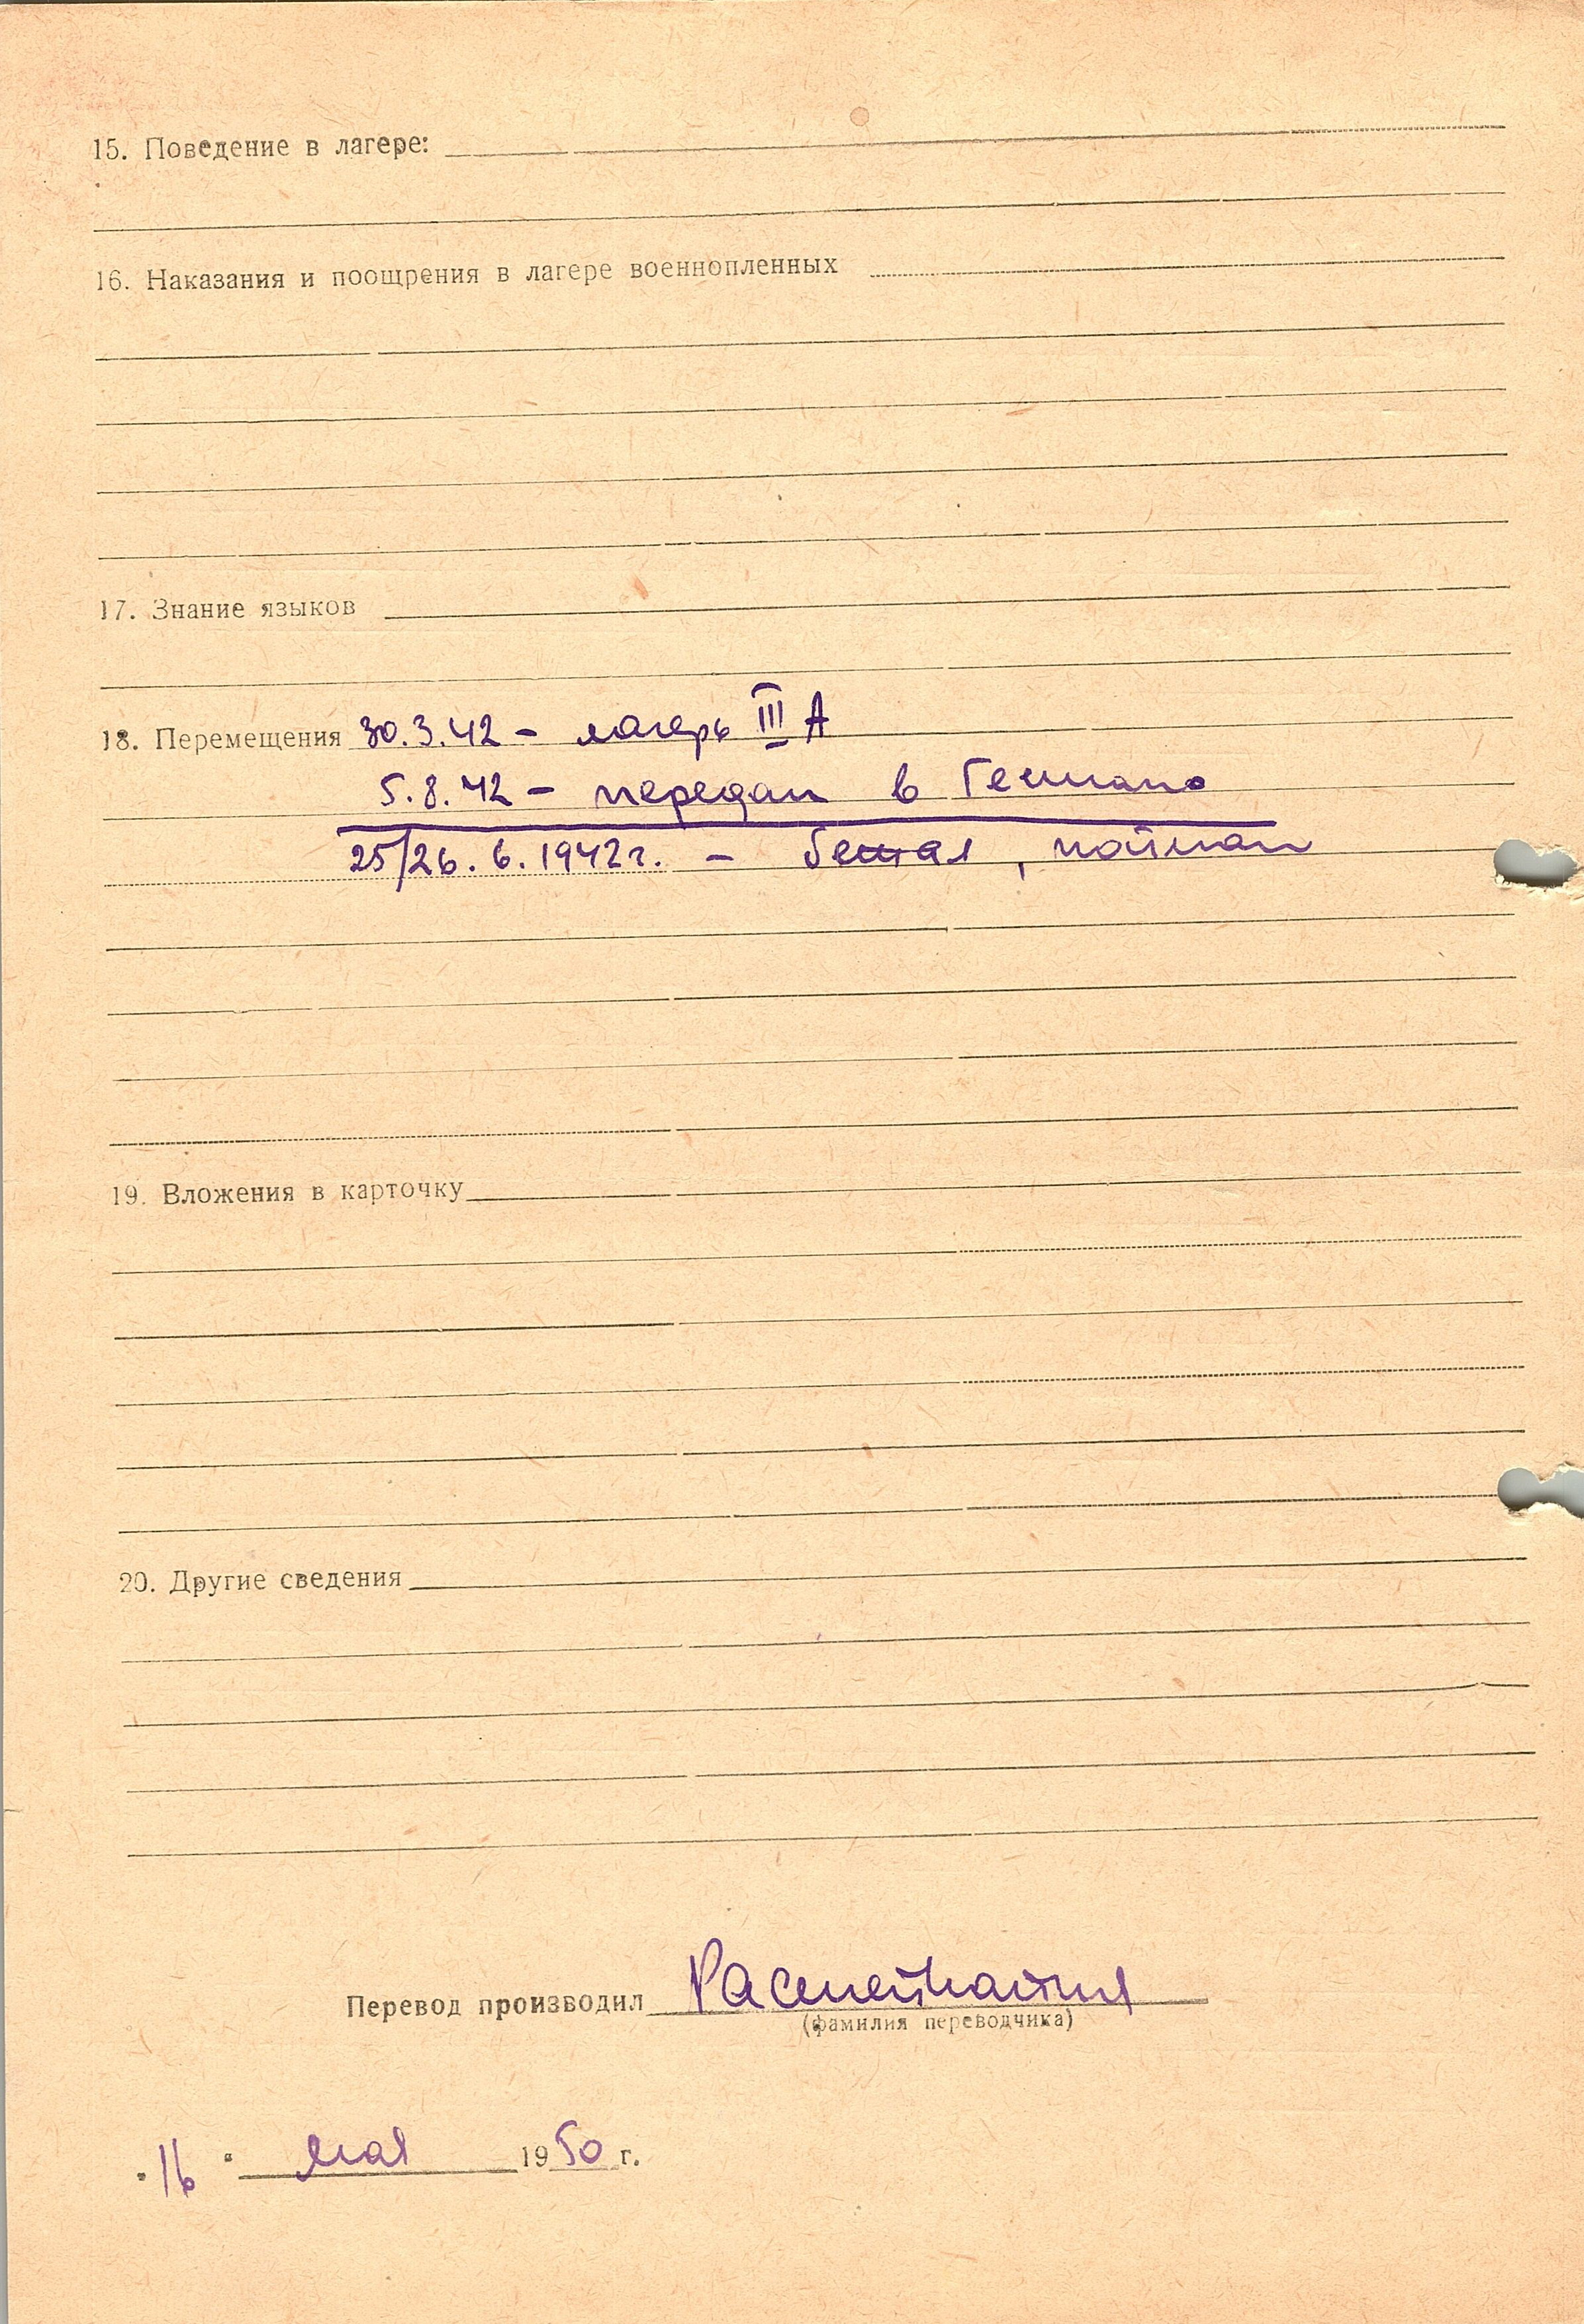 15. Поведение в лагере:
16. Наказания и поощрения в лагере военнопленных
17. Знание языков
18. Перемещения 30.3.42 – лагерь III А
5.8.42 – передан в Гестапо
25/26.6.1942г. – бежал, пойман
19. Вложения в карточку
20. Другие сведения
Перевод производил
(фамилия переводчика)
"16" мая 1950 г.